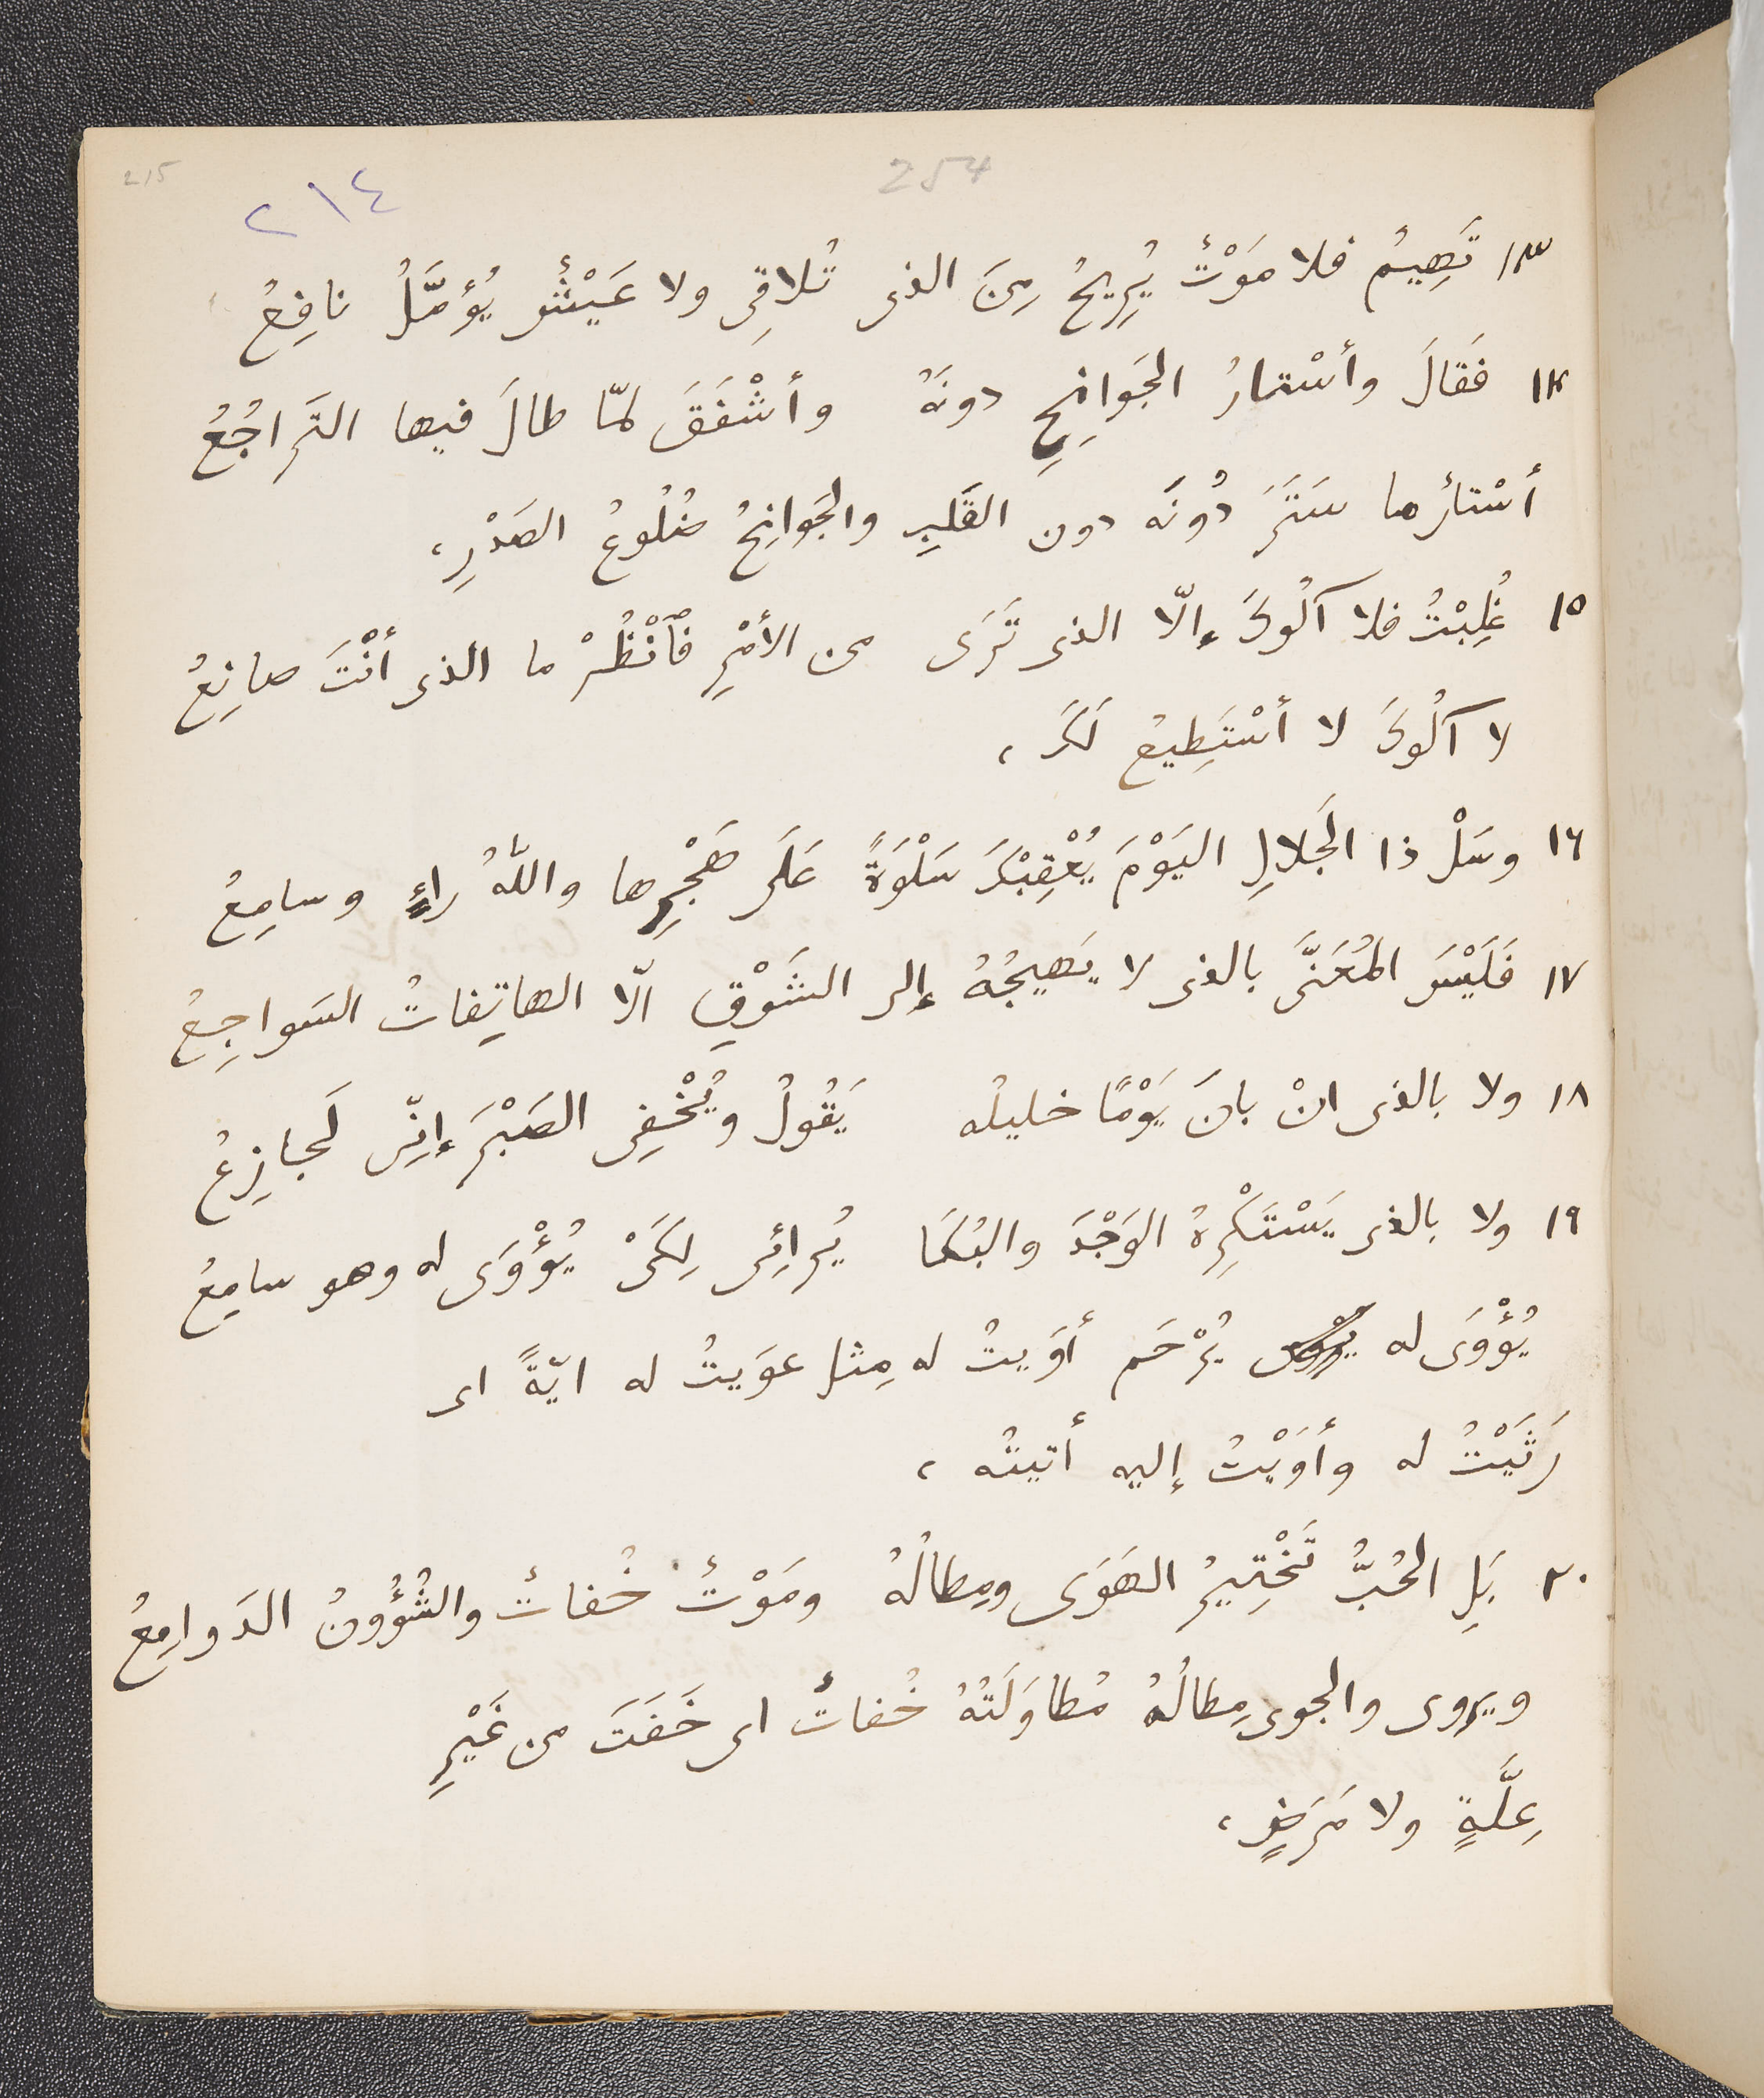 215
254
٢١٤
١٣ تَهِيمُ فلا مَوْتٌ يُرِيحُ مِنَ الذى تُلاقِى ولا عَيْشٌ يُؤمَّلُ نافِعُ
١٤ فَقالَ وأسْتارُ الجَوانِحِ دونَهُ وأشْفَقَ لمّا طالَ فيها التَراجُعُ
أسْتارُ ما سَتَرَ دُونَه دون القَلبِ والجَوانِحُ ضُلُوعُ الصَدْرِ،
١٥ غُلِبْتُ فلا آلُوكَ إلّا الذى تَرَى من الأمْرِ فٱنْظُرْ ما الذى أنْتَ صانِعُ
لا آلُوكَ لا أسْتَطِيعُ لَكَ،
١٦ وسَلْ ذا الجَلالِ اليَوْمَ يُعْقِبْكَ سَلْوَةً عَلَى هَجْرِها واللّهُ راءٍ وسامِعُ
١٧ فَلَيْسَ المُعَنَّى بالذى لا يَهِيجُهُ إلى الشَوْقِ الّا الهاتِفاتُ السَواجِعُ
١٨ ولا بالذى انْ بانَ يَوْمًا خليلُه يَقُولُ ويُخْفِى الصَبْرَ إنِّى لَجازِعُ
١٩ ولا بالذى يَسْتَكْرِهُ الوَجْدَ والبُكَا يُرائِى لِكَىْ يُؤْوَى له وهو سامِعُ
يُؤْوَى له يُرْحَم أوَيتُ له مِثل عوَيتُ له ايّةً اى
رَثَيْتُ له وأوَيْتُ إليه أتيتُه،
٢٠ بَلِ الحُبُّ تَخْتِيرُ الهَوَى ومِطالُهُ ومَوْتٌ خُفاتٌ والشُؤُونُ الدَوامِعُ
ويروى والجوى مِطالُهُ مُطاوَلَتُهُ خُفاتٌ اى خَفَتَ من غَيْرِ
عِلَّةٍ ولا مَرَضٍ،